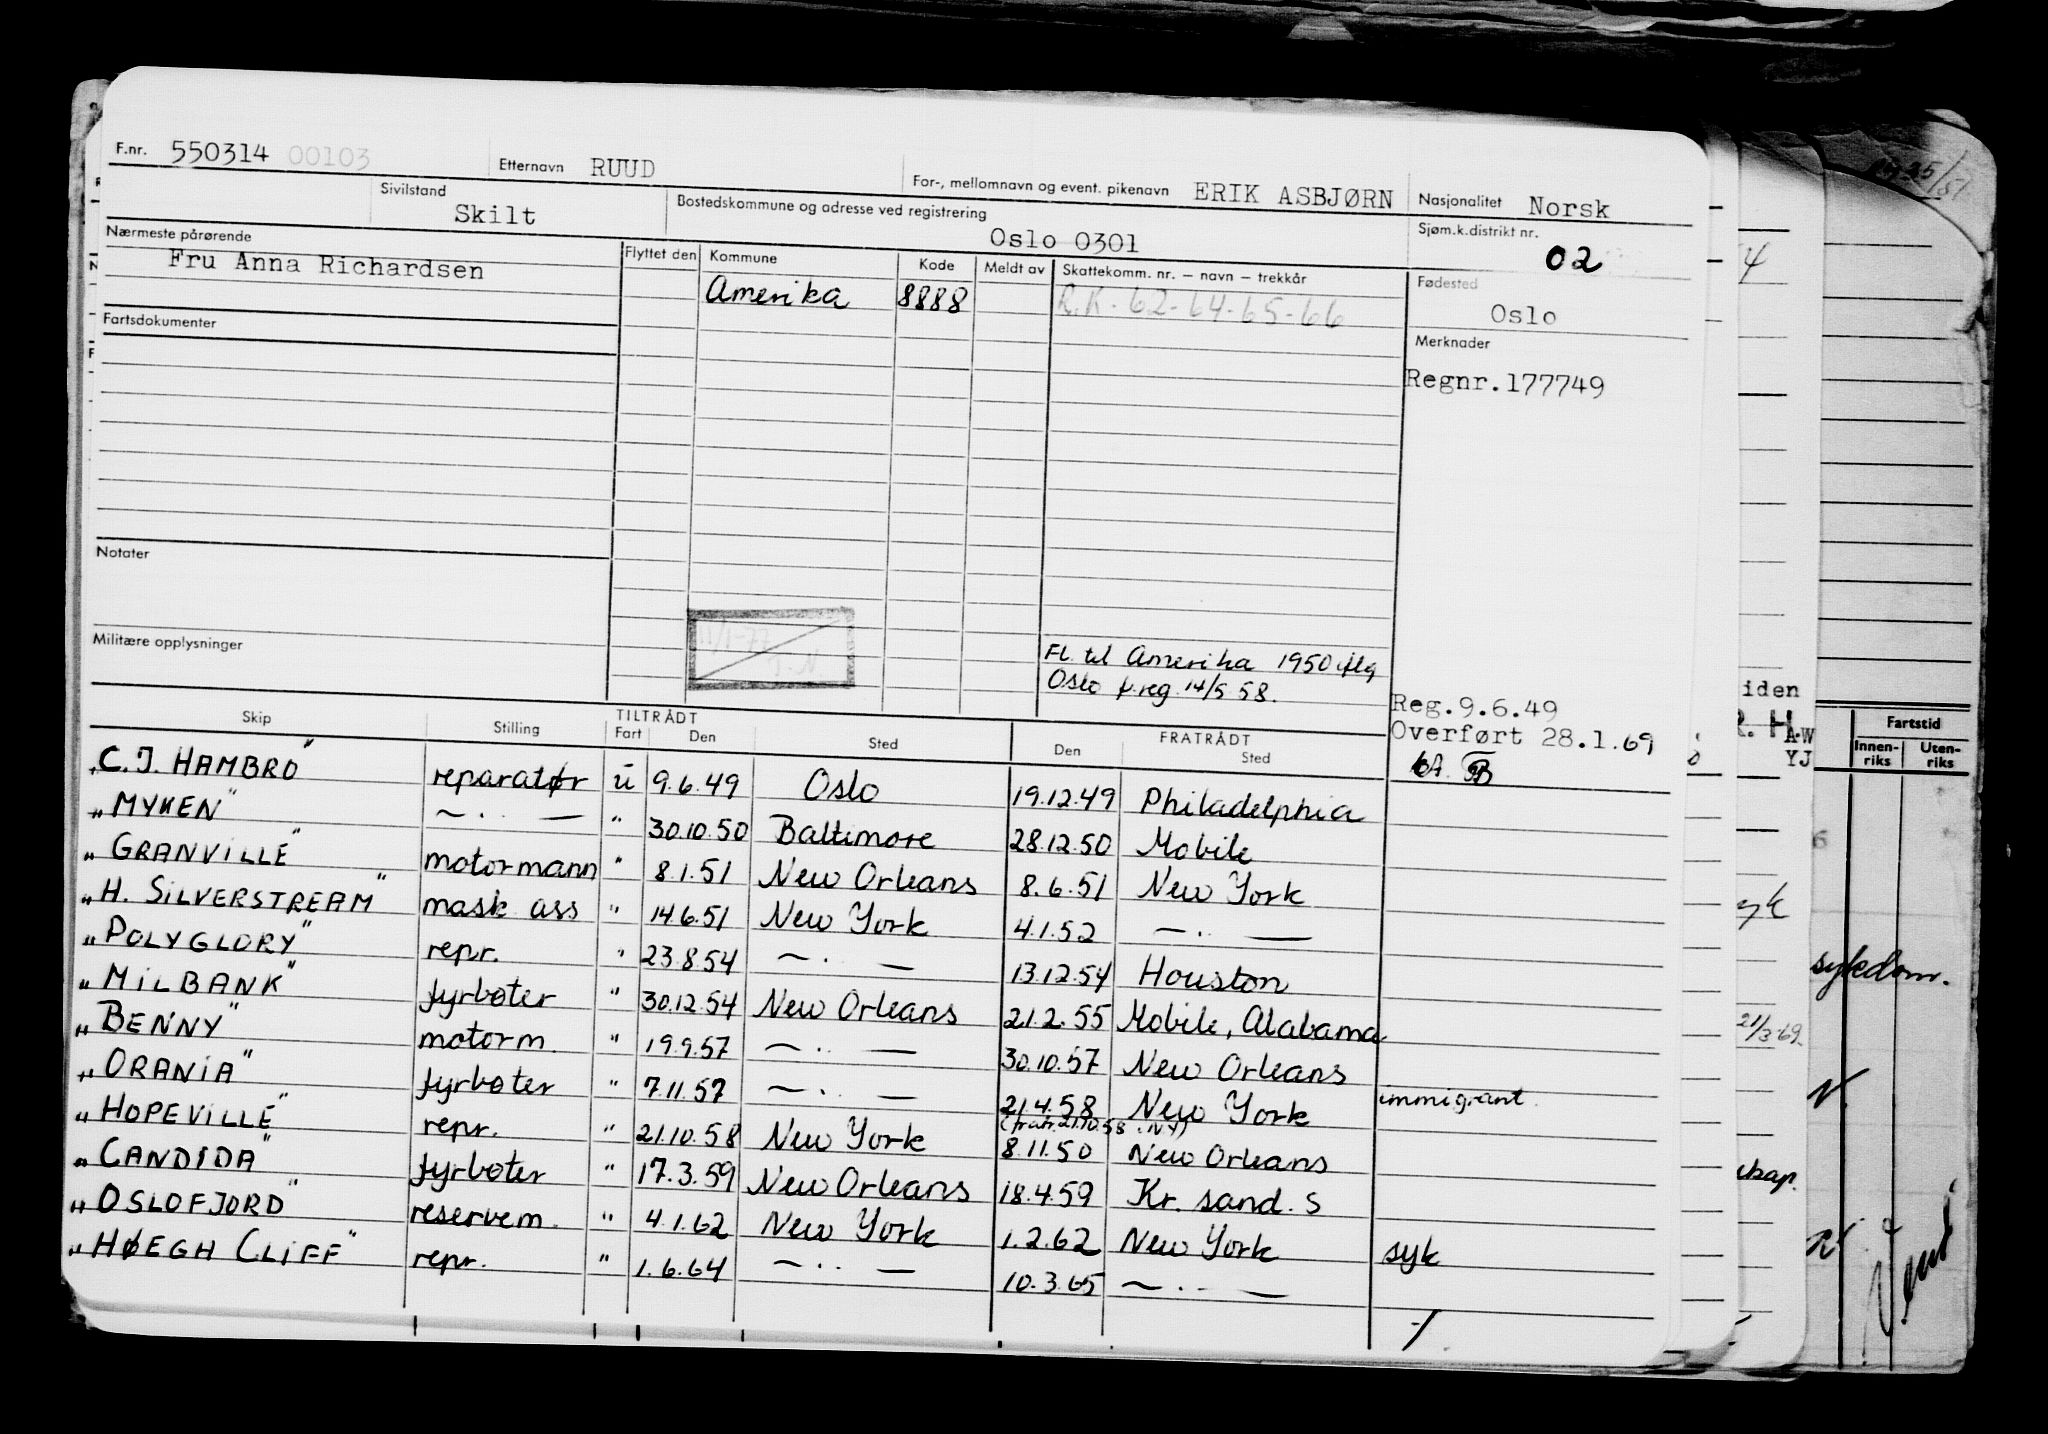 F.nr. 550314 00103 Etternavn RUUD For-, mellomnavn og event. pikenavn ERIK ASBJØRN Nasjonalitet Norsk
Sivilstand Skilt Bostedskommune og adresse ved registrering Oslo 0301 Sjøm.k.distrikt nr. 02
Nærmeste pårørende Fru Anna Richardsen Flyttet den Kommune Kode Meldt av Skattekomm. nr. – navn – trekkår Fødested Oslo
Amerika 8888 R.K-62-64-65-66
Fartsdokumenter Merknader
Regnr.177749
Notater
11/1-77
Militære opplysninger
Fl. til Amerika 1950 iflg
Oslo f.reg. 14/5 58.
Reg.9.6.49
Overført 28.1.69
Skip Stilling TILTRÅDT Fart Den Sted FRATRÅDT Den Sted
"C.J. HAMBRO" reparatør u 9.6.49 Oslo 19.12.49 Philadelphia
"MYKEN" —..— " 30.10.50 Baltimore 28.12.50 Mobile
"GRANVILLE" motormann " 8.1.51 New Orleans 8.6.51 New York
"H. SILVERSTREAM" mask ass " 14.6.51 New York 4.1.52 —..—
"POLYGLORY" repr. " 23.8.54 —..— 13.12.54 Houston
"MILBANK" fyrbøter " 30.12.54 New Orleans 21.2.55 Mobile, Alabama
"BENNY" motorm. " 19.9.57 —..— 30.10.57 New Orleans
"ORANIA" fyrbøter " 7.11.57 —..— 21.4.58 New York immigrant
(fratr. 21.10.58 i NY)
"HOPEVILLE" repr. " 21.10.58 New York 8.11.50 New Orleans
"CANDIDA" fyrbøter " 17.3.59 New Orleans 18.4.59 Kr. sand. S
"OSLOFJORD" reservem. " 4.1.62 New York 1.2.62 New York syk
"HØEGH CLIFF" repr. " 1.6.64 —..— 10.3.65 —..—
iden
R. H
A-W
YJ
Fartstid
Innen-
riks
Uten-
riks
yk
sykdom.
21/3-69.